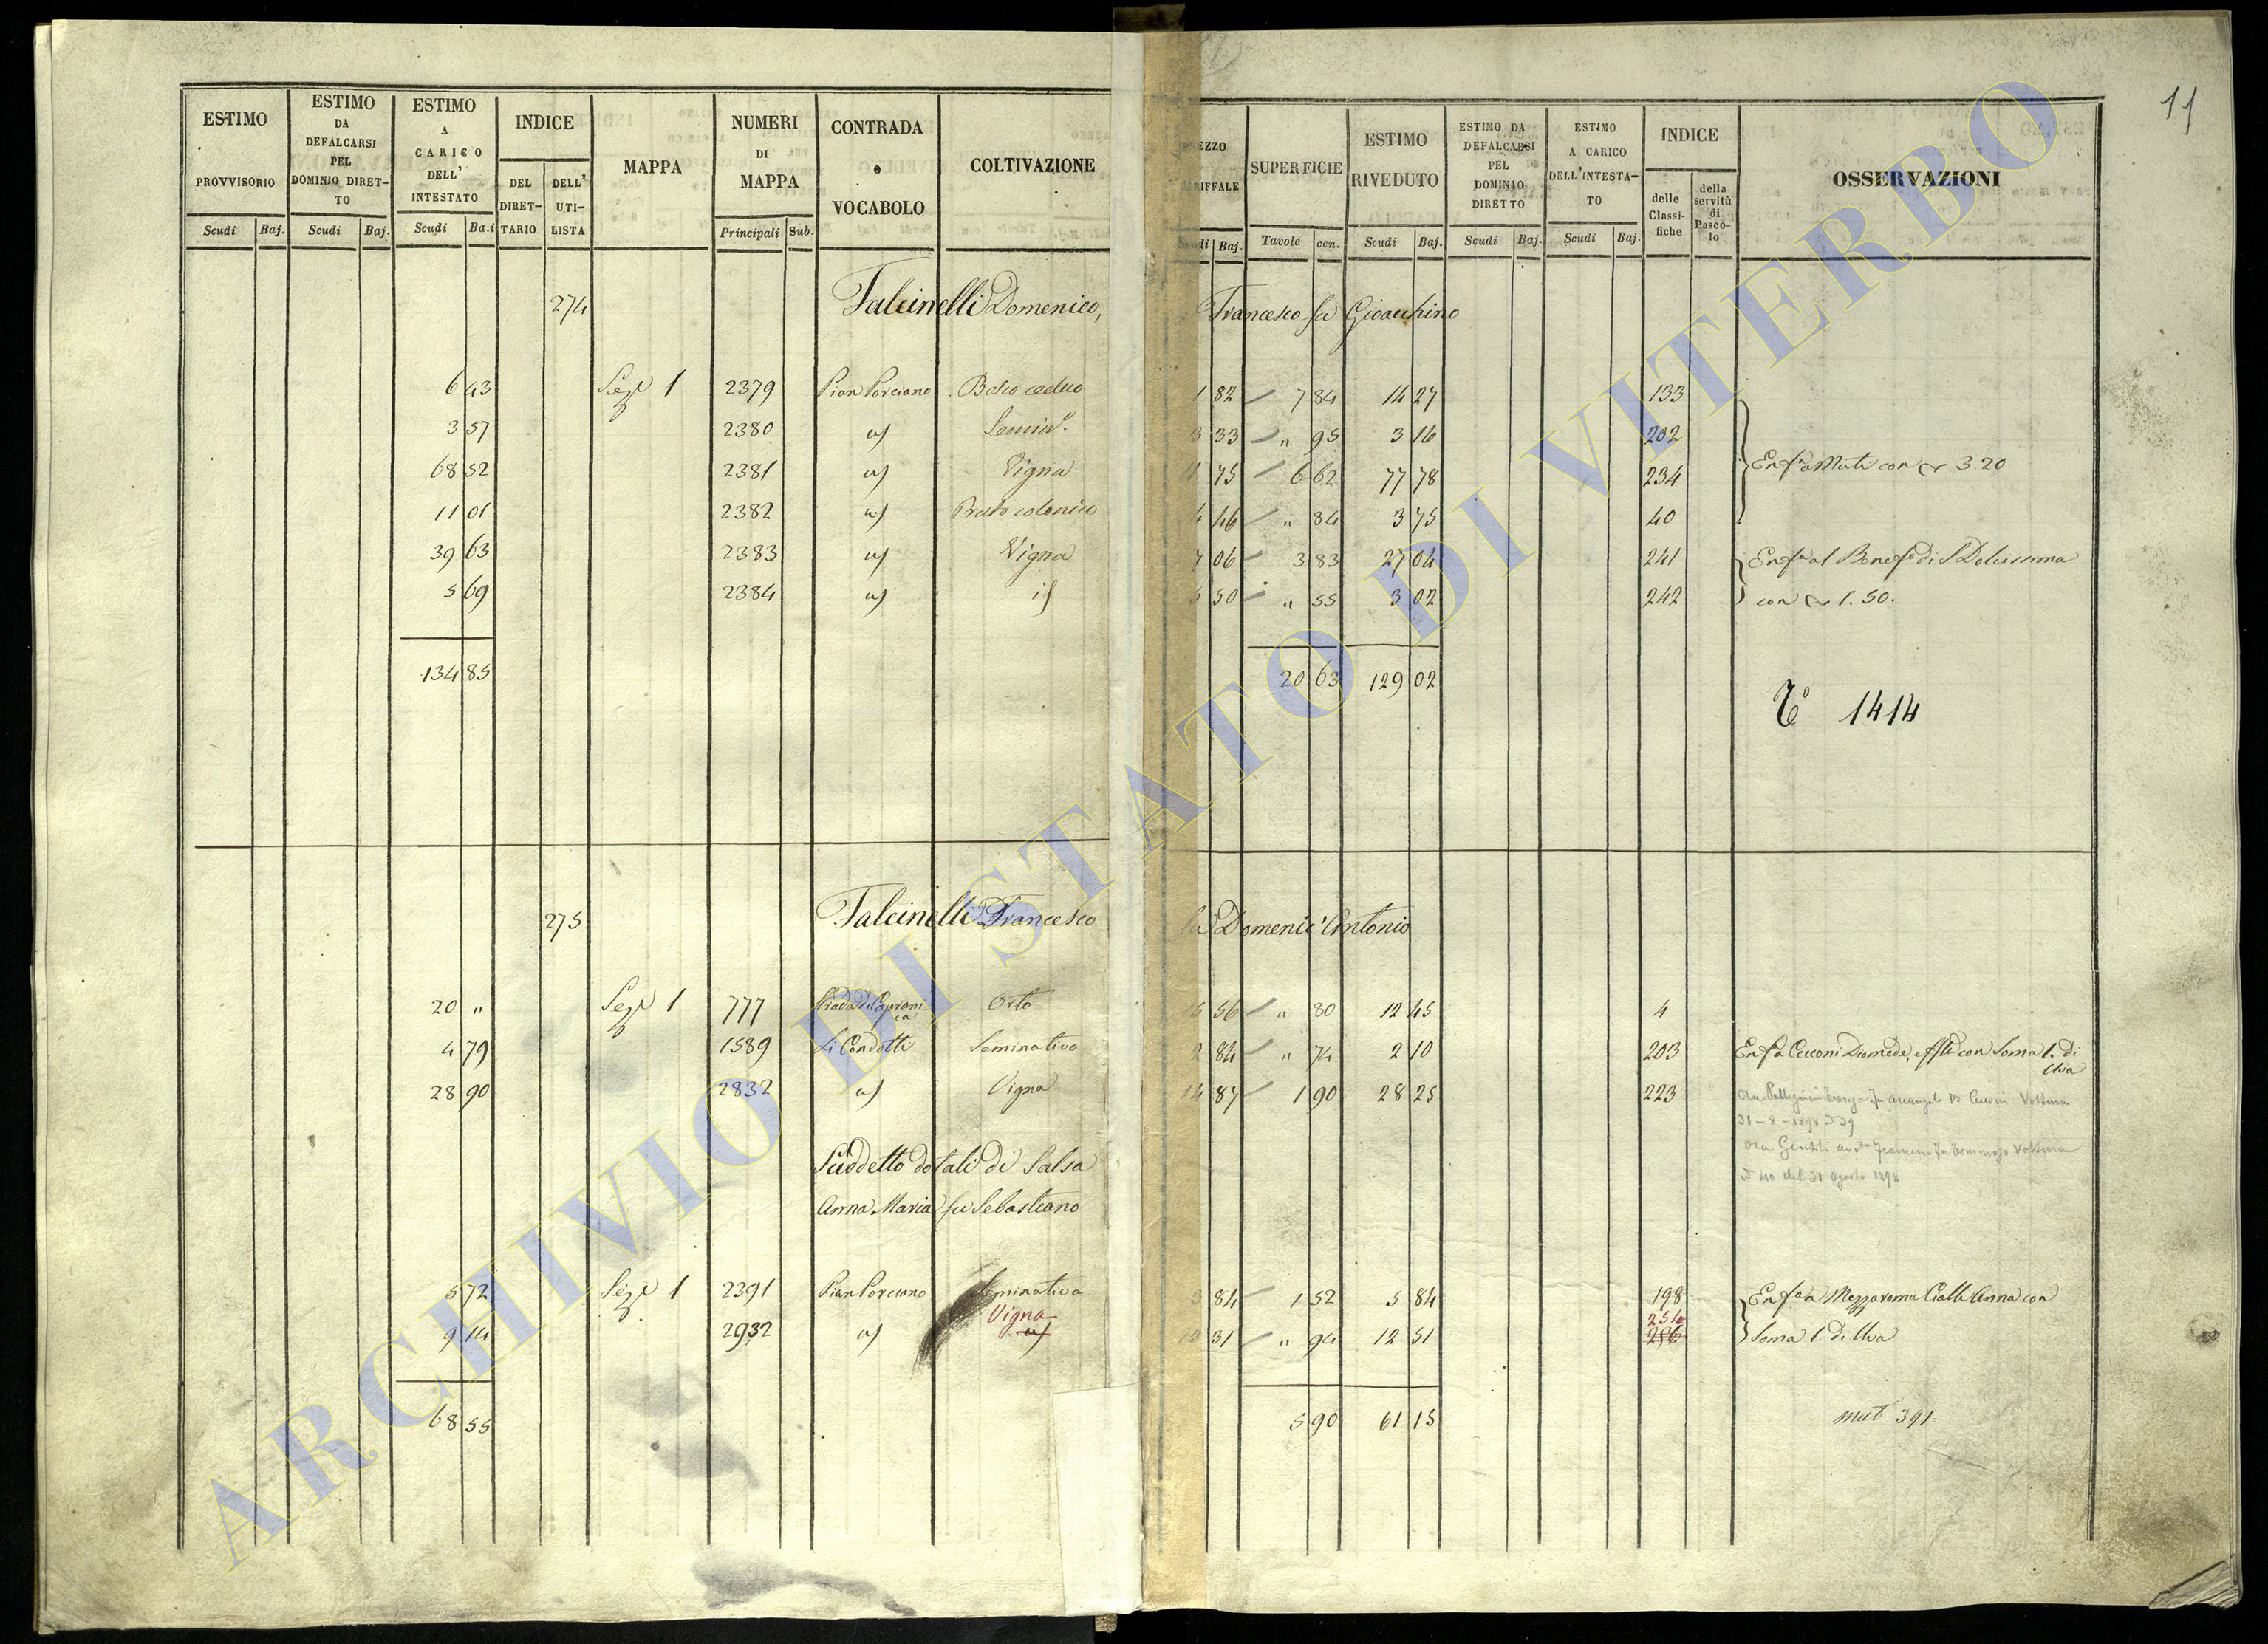 11
ESTIMO PROVVISORIO Scudi Baj.
ESTIMO DA DEFALCARSI PEL DOMINIO DIRET-TO Scudi Baj.
ESTIMO A CARICO DELL' INTESTATO Scudi Ba.i
INDICE DEL DIRET-TARIO DELL' UTI-LISTA
MAPPA
NUMERI DI MAPPA Principali Sub.
CONTRADA o VOCABOLO
COLTIVAZIONE
EZZO RIFFALE Baj.
SUPERFICIE Tavole cen.
ESTIMO RIVEDUTO Scudi Baj.
ESTIMO DA DEFALCARSI PEL DOMINIO DIRETTO Scudi Baj.
ESTIMO A CARICO DELL'INTESTA-TO Scudi Baj.
INDICE delle Classi-fiche della servitù di Pasco-lo
OSSERVAZIONI
274 Falcinelli Domenico, Francesco fu Gioacchino
6 43 Sez 1 2379 Pian Porciano Bosco ceduo 1 82 7 84 14 27 133
3 57 2380 id Semin.º 3 33 " 95 3 16 202
68 52 2381 id Vigna 75 6 62 77 78 234 Enf.a a Muti con 3.20
11 01 2382 id Prato colonico 4 46 " 84 3 75 40
39 63 2383 id Vigna 7 06 3 83 27 04 241 Enf.a al Benef.o di S Dolcissima
5 69 2384 id id 5 50 " 55 3 02 242 con 1.50.
134 85 20 63 129 02
T.o 1414
275 Falcinelli Francesco fu Domenic'Antonio
20 " Sez 1 777 Strada di Caprani-ca Orto 15 56 " 80 12 45 4
4 79 1589 Li Condotti Seminativo 2 84 " 74 2 10 203 Enf.a Cecconi Diomede, e fflli con Soma 1. di Uva
28 90 2832 id Vigna 14 87 1 90 28 25 223 ora Pellegrini fu Arcangelo Voltura
31-8-1898 N 39
ora Gentili Francesco fu Tommaso Voltura
N 40 del 31 Agosto 1898
Suddetto dotali di Salsa
Anna Maria fu Sebastiano
5 72 Sez 1 2391 Pian Porciano Seminativo 3 84 1 52 5 84 198 Enf.a a Mezzaroma Cialli Anna con
9 14 2932 id Vigna id 13 31 " 94 12 51 254 256 Soma 1. di Uva
68 55 5 90 61 15
mut 391.
ARCHIVIO DI STATO DI VITERBO